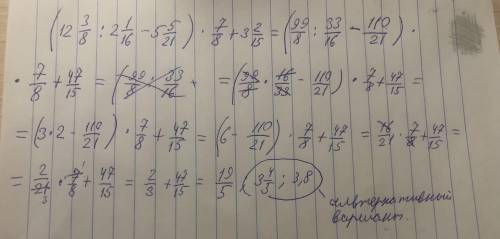 (12 3/8 : 2 1/16 − 5 5/21) · 7/8 + 3 2/15 = (99/8 : 33/16 − 110/21) ·
· 7/8 + 47/15 = (99/8 · 33/16 = (99/8 · 16/33 − 110/21) · 7/8 + 47/15 =
= (3 · 2 − 110/21) · 7/8 + 47/15 = (6 − 110/21) · 7/8 + 47/15 = 16/21 · 7/8 + 47/15 =
= 2/21 3 · 7/8 1 + 47/15 = 2/3 + 47/15 = 19/5, 3 4/5 ; 3,8
альтернативный
варианты.